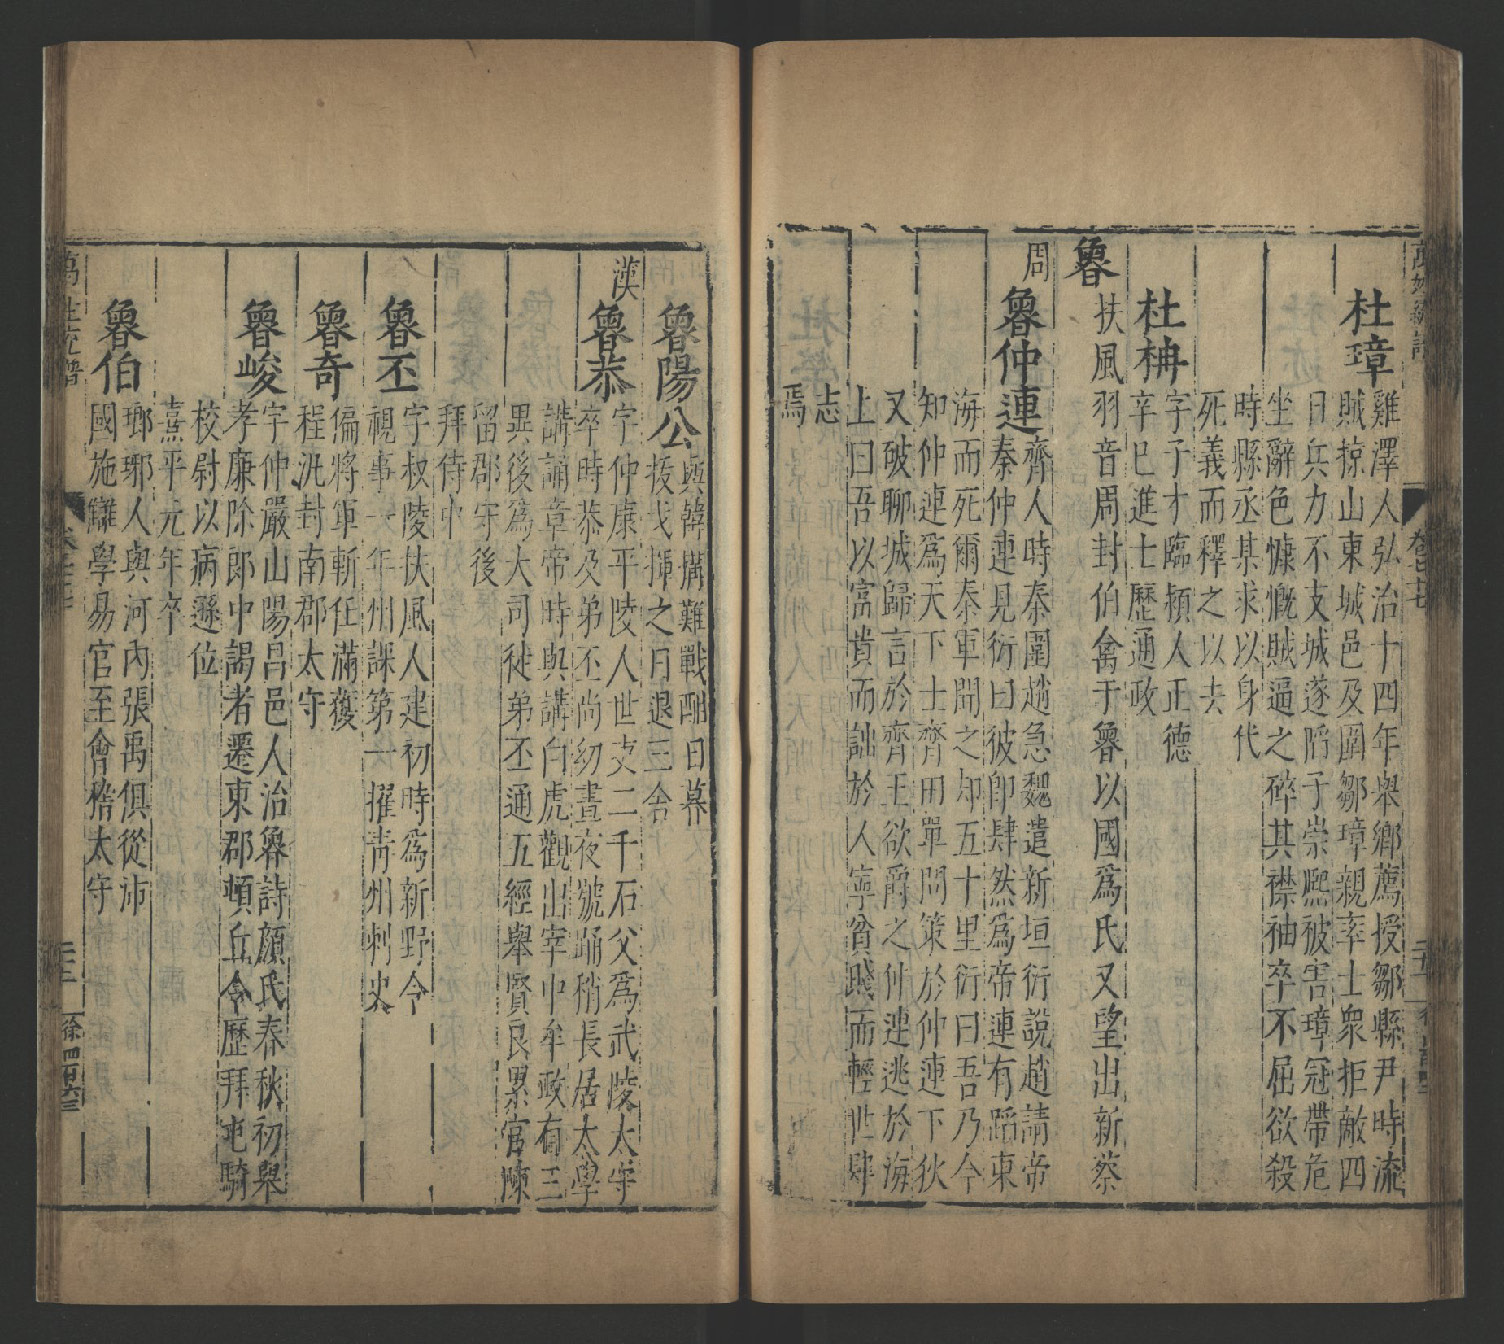 萬姓統譜 卷七十七
杜璋
雞澤人弘治十四年舉鄉薦授鄒縣尹時流
賊掠山東城邑及圍鄒璋親率士衆拒敵四
日兵力不支城遂陷子崇熈被害璋冠帶危
坐辭色慷慨賊逼之碎其襟袖卒不屈欲殺
時縣丞某求以身代
死義而釋之以去
杜柟
字子才臨潁人正德
辛巳進士歷通政
魯
扶風羽音周封伯禽于魯以國爲氏又望出新蔡
周
魯仲連
齊人時秦圍趙急魏遣新垣衍說趙請帝
秦仲連見衍曰彼卽肆然爲帝連有蹈東
海而死爾秦軍聞之却五十里衍曰吾乃今
知仲連爲天下士齊田單問策於仲連下狄
又破聊城歸言於齊王欲爵之仲連逃於海
上曰吾以富貴而詘於人寧貧賤而輕世肆
志
焉
魯陽公
與韓搆難戰酣日暮
援戈揮之日退三舍
漢
魯恭
字仲康平陵人世支二千石父爲武陵太守
卒時恭及弟丕尚幼晝夜號踊稍長居太學
講誦章帝時與講白虎觀出宰中牟政有三
異後爲大司徒弟丕通五經舉賢良累官陳
留郡守後
拜侍中
魯丕
字叔陵扶風人建初時爲新野令
視事一年州課第一擢青州刺史
魯奇
偏將軍斬任滿獲
程汎封南郡太守
魯峻
字仲嚴山陽昌邑人治魯詩顔氏春秋初舉
孝廉除郎中謁者遷東郡頓丘令歷拜屯騎
校尉以病遜位
熹平元年卒
魯伯
瑯琊人與河內張禹俱從沛
國施讎學易官至會稽太守
萬姓統譜 卷七十七